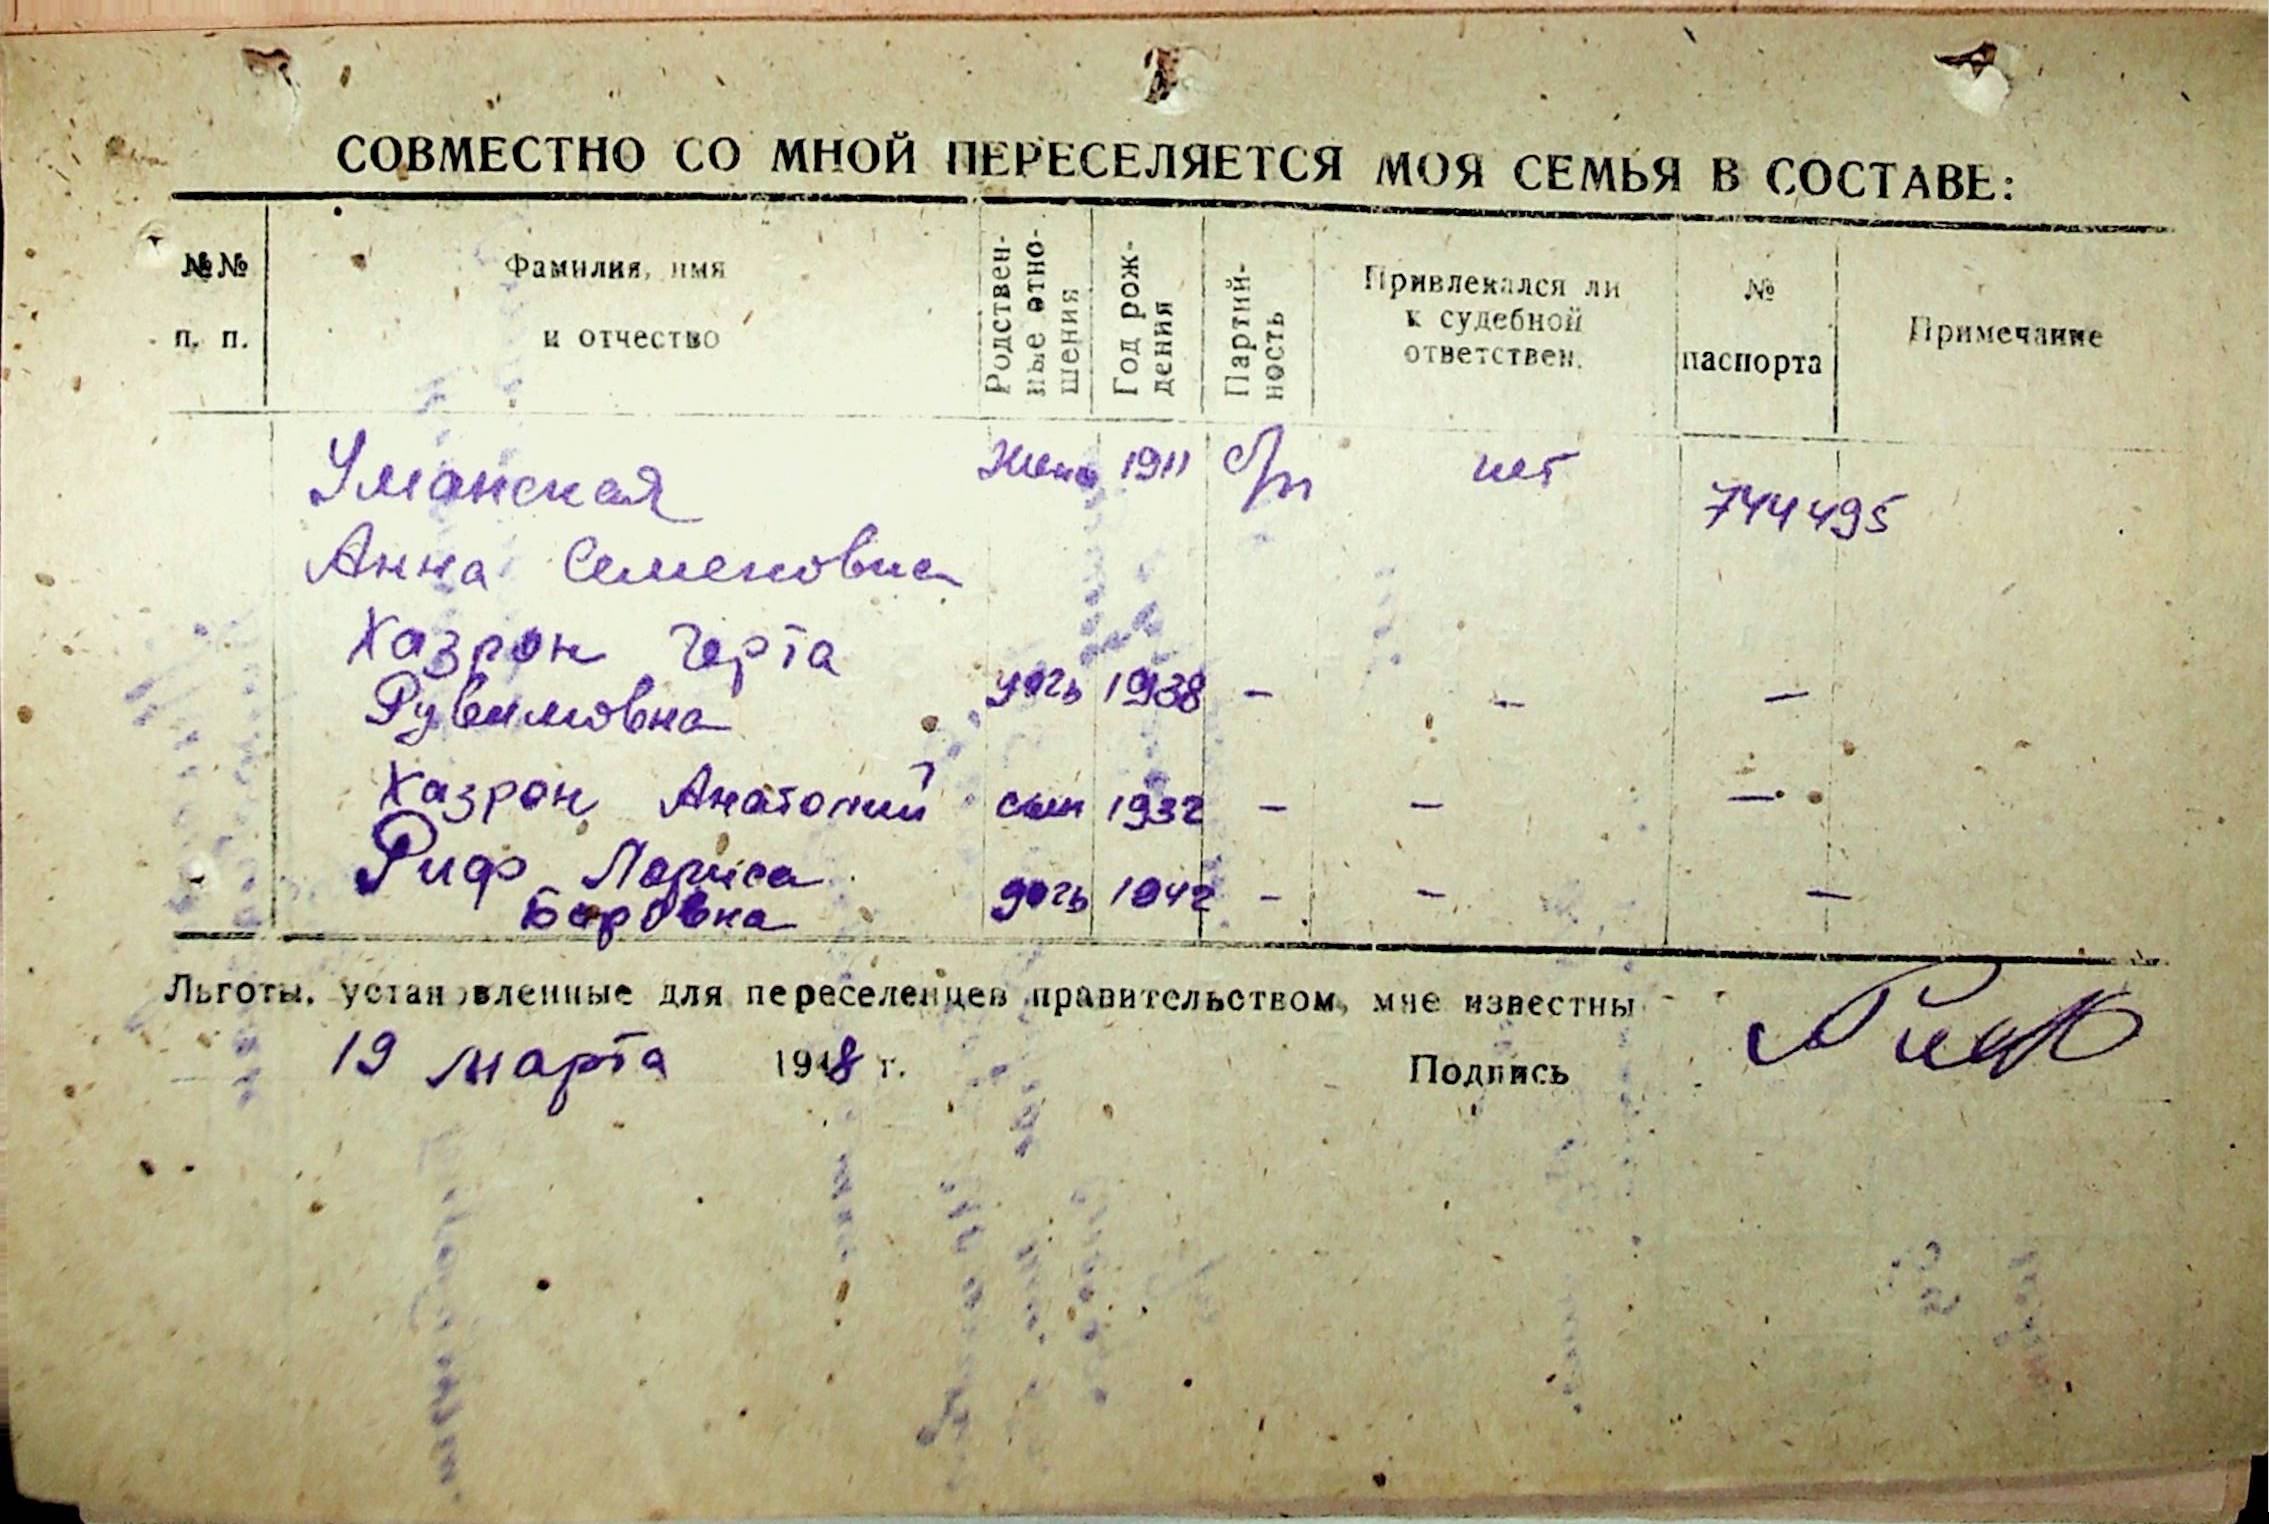 СОВМЕСТНО СО МНОЙ ПЕРЕСЕЛЯЕТСЯ МОЯ СЕМЬЯ В СОСТАВЕ:
№№ п. п.
Фамилия, имя и отчество
Родствен-
ные отно-
шения
Год рож-
дения
Партий-
ность
Привлекался ли
к судебной
ответствен.
№
паспорта
Примечание
Уманская жена 1911 б/п нет 744495
Анна Семеновна
Хазрон Герта
Рувимовна дочь 1938 — — —
Хазрон Анатолий сын 1932 — — —
Риф Лариса
Боровна дочь 1942 — — —
Льготы, установленные для переселенцев правительством, мне известны
19 марта 1948 г. Подпись